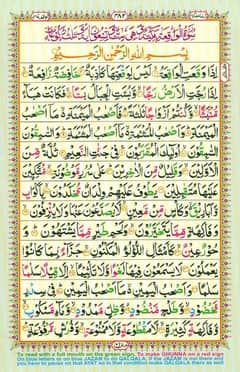 بِسْمِ اللهِ الرَّحْمٰنِ الرَّحِيْمِ
اِذَا وَقَعَتِ الْوَاقِعَةُ لَيْسَ لِوَقْعَتِهَا كَاذِبَةٌ خَافِضَةٌ رَّافِعَةٌ
اِذَا رُجَّتِ الْاَرْضُ رَجًّا وَّبُسَّتِ الْجِبَالُ بَسًّا فَكَانَتْ هَبَآءً
مُّنْۢبَثًّا وَّكُنْتُمْ اَزْوَاجًا ثَلٰثَةً فَاَصْحٰبُ الْمَيْمَنَةِ مَآ اَصْحٰبُ
الْمَيْمَنَةِ وَاَصْحٰبُ الْمَشْئَمَةِ مَآ اَصْحٰبُ الْمَشْئَمَةِ وَالسّٰبِقُوْنَ
السّٰبِقُوْنَ اُولٰٓئِكَ الْمُقَرَّبُوْنَ فِيْ جَنّٰتِ النَّعِيْمِ ثُلَّةٌ مِّنَ
الْاَوَّلِيْنَ وَقَلِيْلٌ مِّنَ الْاٰخِرِيْنَ عَلٰى سُرُرٍ مَّوْضُوْنَةٍ مُّتَّكِئِيْنَ
عَلَيْهَا مُتَقٰبِلِيْنَ يَطُوْفُ عَلَيْهِمْ وِلْدَانٌ مُّخَلَّدُوْنَ بِاَكْوَابٍ
وَّاَبَارِيْقَ وَكَاْسٍ مِّنْ مَّعِيْنٍ لَّا يُصَدَّعُوْنَ عَنْهَا وَلَا يُنْزِفُوْنَ
وَفَاكِهَةٍ مِّمَّا يَتَخَيَّرُوْنَ وَلَحْمِ طَيْرٍ مِّمَّا يَشْتَهُوْنَ وَ
حُوْرٌ عِيْنٌ كَاَمْثَالِ اللُّؤْلُؤِ الْمَكْنُوْنِ جَزَآءً بِمَا كَانُوْا
يَعْمَلُوْنَ لَا يَسْمَعُوْنَ فِيْهَا لَغْوًا وَّلَا تَاْثِيْمًا اِلَّا قِيْلًا سَلٰمًا
سَلٰمًا وَاَصْحٰبُ الْيَمِيْنِ مَآ اَصْحٰبُ الْيَمِيْنِ فِيْ سِدْرٍ
مَّخْضُوْدٍ وَّطَلْحٍ مَّنْضُوْدٍ وَّظِلٍّ مَّمْدُوْدٍ وَّمَآءٍ مَّسْكُوْبٍ
وَّفَاكِهَةٍ كَثِيْرَةٍ لَّا مَقْطُوْعَةٍ وَّلَا مَمْنُوْعَةٍ وَّفُرُشٍ
To read with a full mouth on the green sign, To make GHUNNA on a red sign
On blue letters or on blue JAZAM to do QALQALA, if the JAZAM is not there and
you have to pause on that AYAT so in that condition make QALQALA there as well